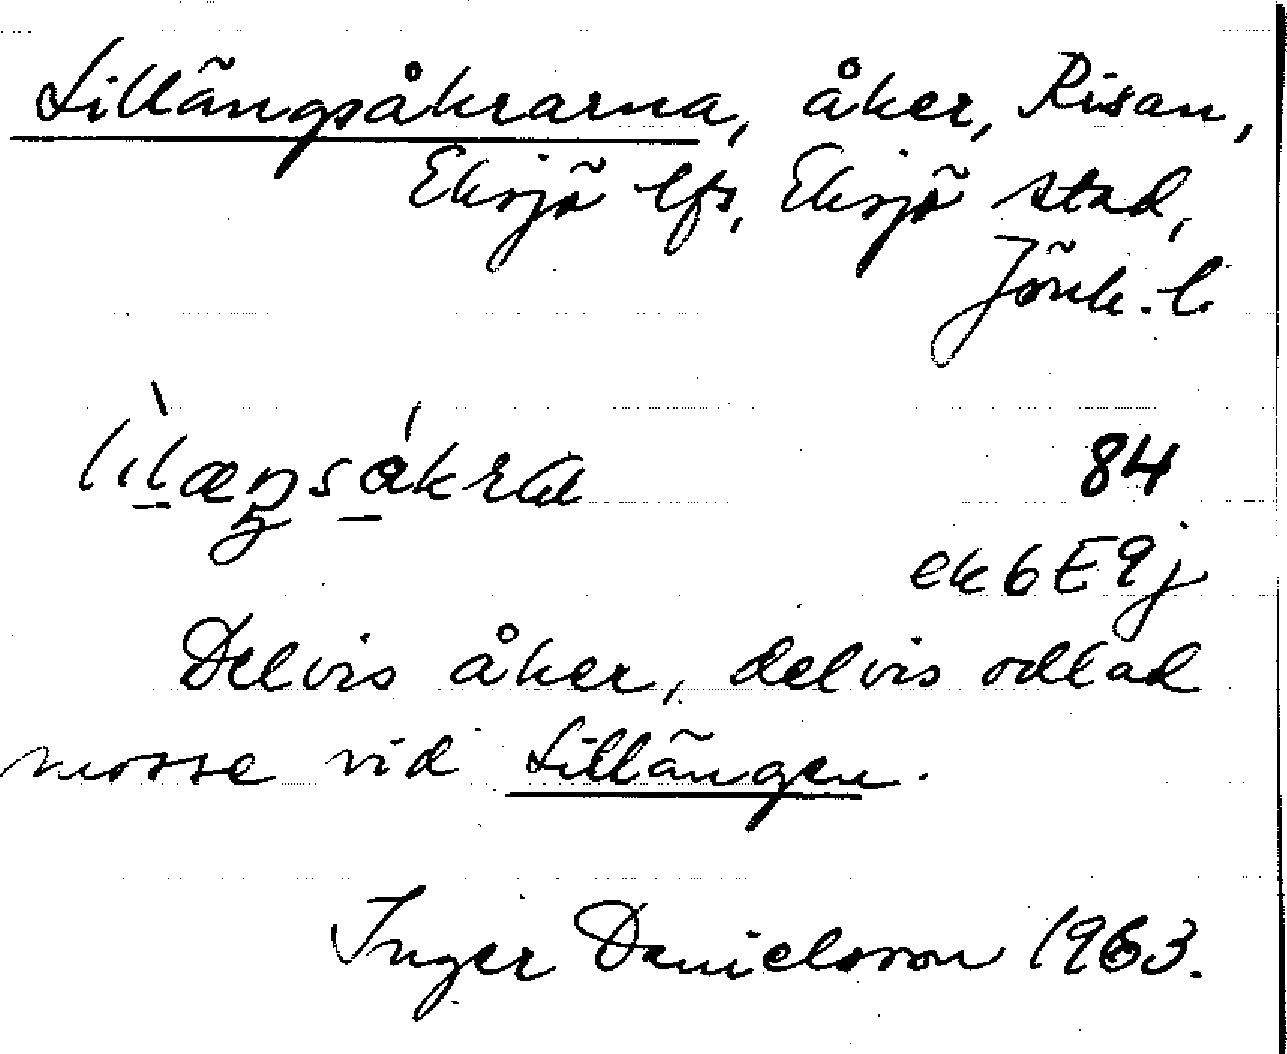 Lillängsåkrarna, åker, Risan,
Eksjö lfs, Eksjö stad,
Jönk. l.
84
ek 6E9j
Delvis åker, delvis odlad
mosse vid Lillängen.
Inger Danielsson 1963.